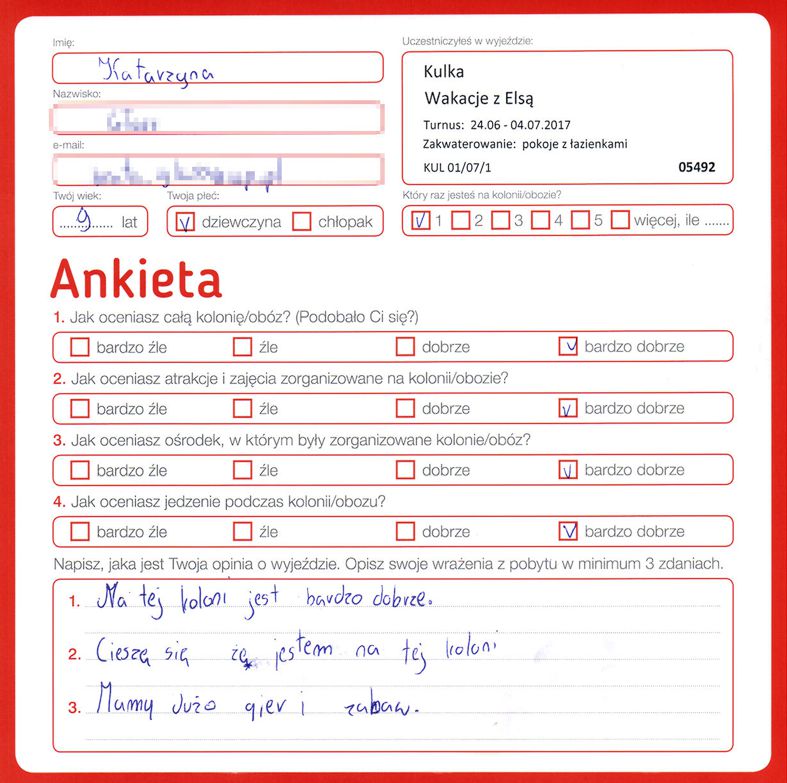 Imię:
Katarzyna
Nazwisko:
e-mail:
Twój wiek:
9 lat
Twoja płeć:
dziewczyna chłopak
Uczestniczyłeś w wyjeździe:
Kulka
Wakacje z Elsą
Turnus: 24.06 - 04.07.2017
Zakwaterowanie: pokoje z łazienkami
KUL 01/07/1 05492
Który raz jesteś na kolonii/obozie?
1 2 3 4 5 więcej, ile .......
Ankieta
1. Jak oceniasz całą kolonię/obóz? (Podobało Ci się?)
bardzo źle źle dobrze bardzo dobrze
2. Jak oceniasz atrakcje i zajęcia zorganizowane na kolonii/obozie?
bardzo źle źle dobrze bardzo dobrze
3. Jak oceniasz ośrodek, w którym były zorganizowane kolonie/obóz?
bardzo źle źle dobrze bardzo dobrze
4. Jak oceniasz jedzenie podczas kolonii/obozu?
bardzo źle źle dobrze bardzo dobrze
Napisz, jaka jest Twoja opinia o wyjeździe. Opisz swoje wrażenia z pobytu w minimum 3 zdaniach.
1. Na tej koloni jest bardzo dobrze.
2. Cieszę się żę jestem na tej koloni
3. Mamy dużo gier i zabaw.